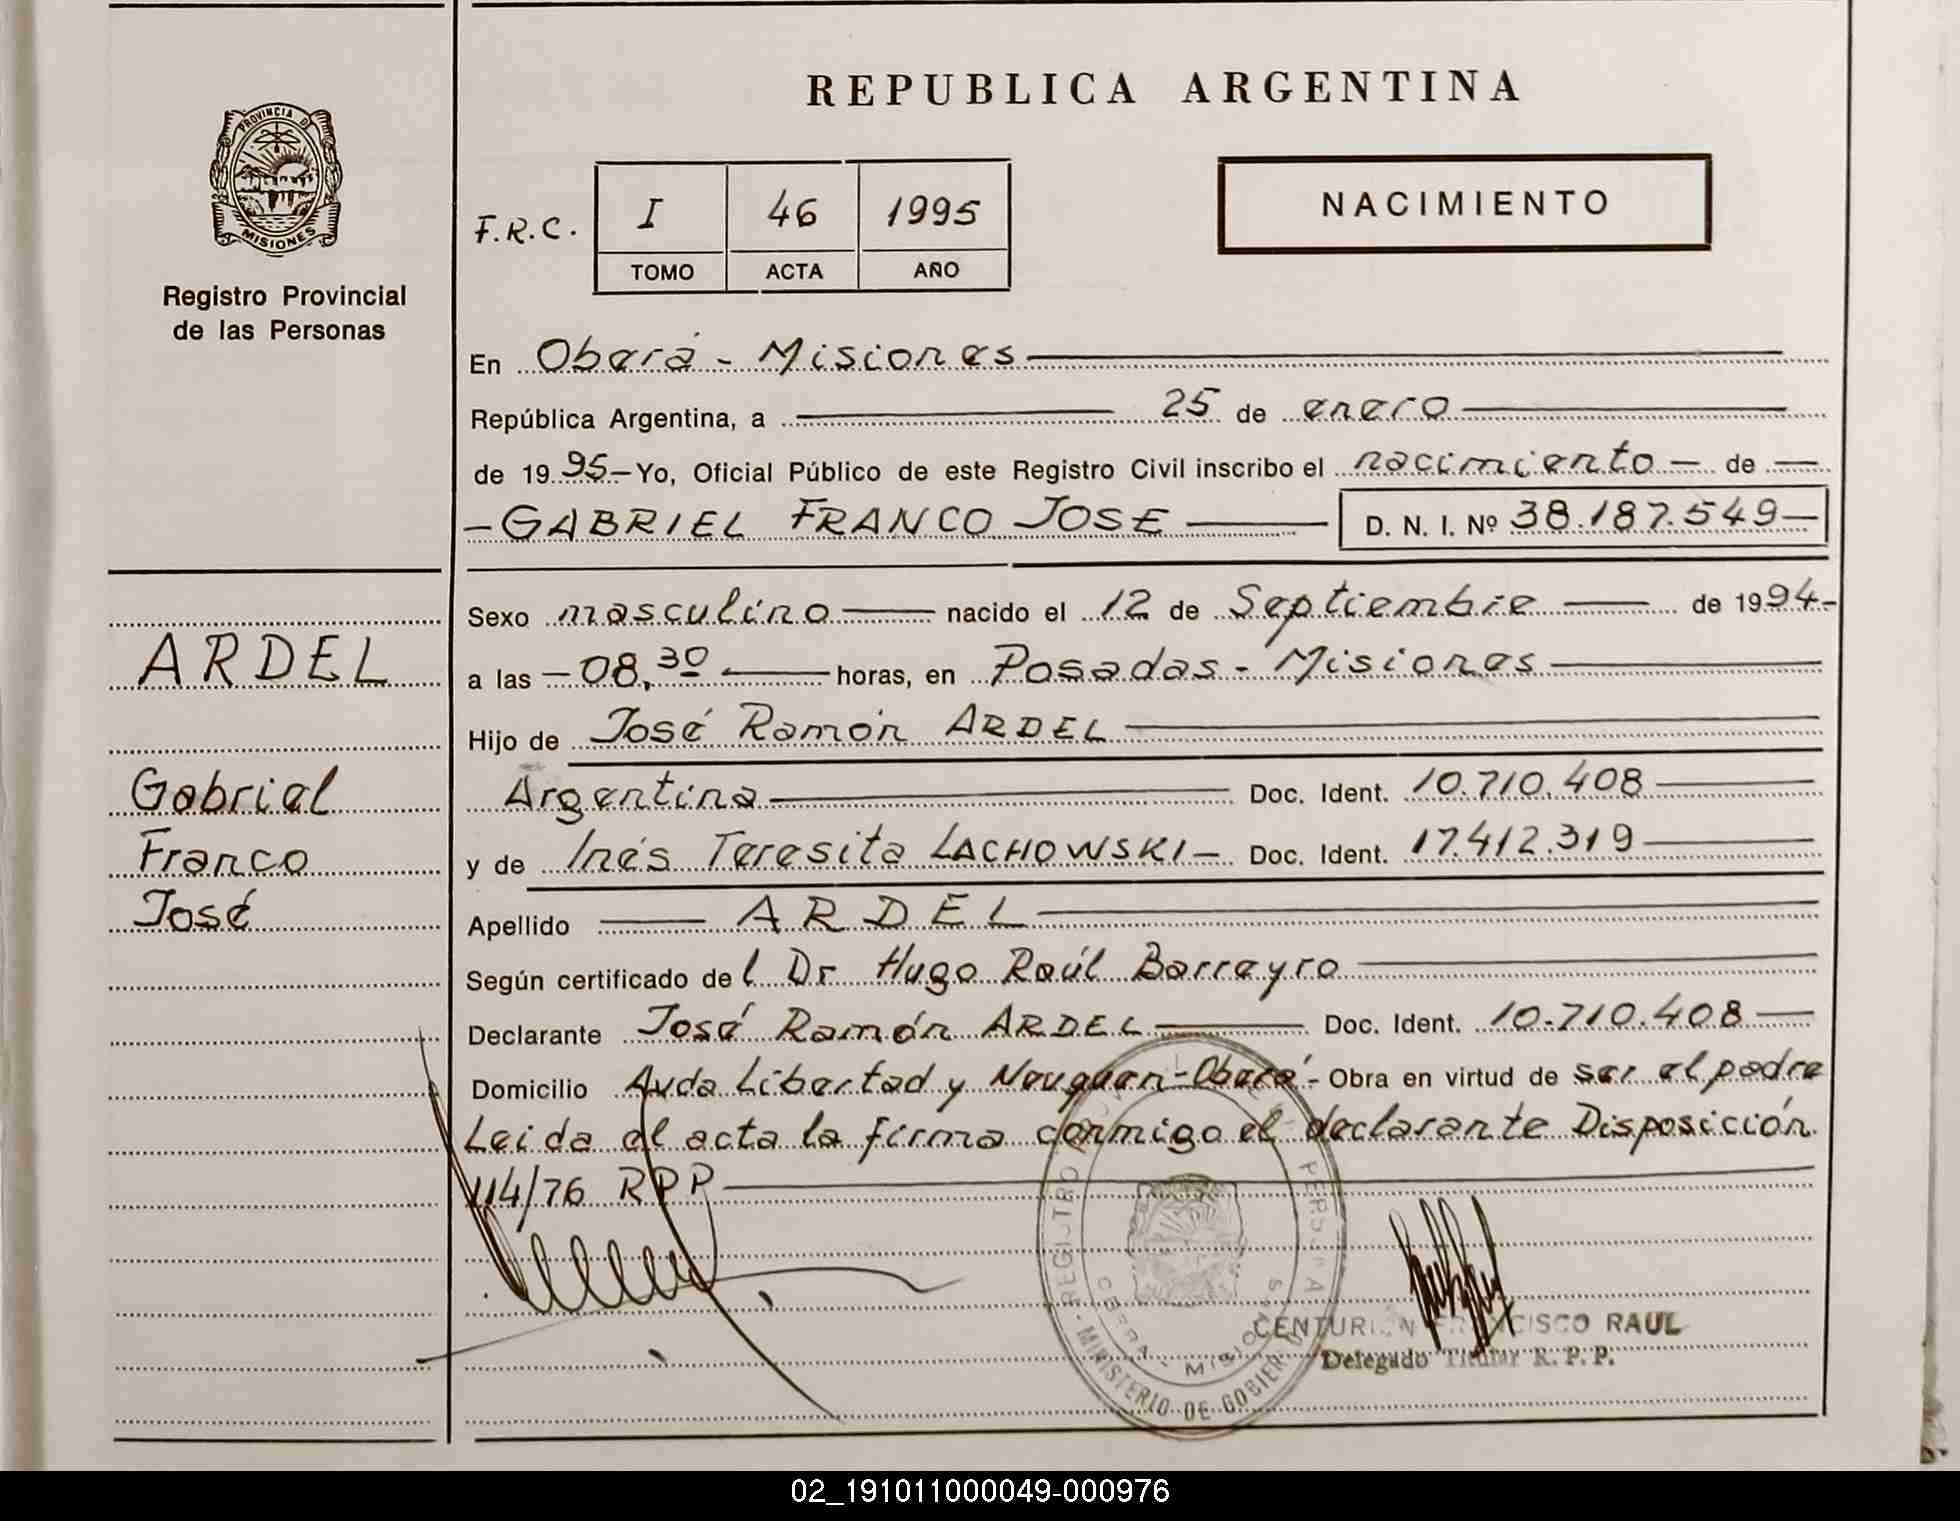 REPUBLICA ARGENTINA
PROVINCIA D
MISIONES
Registro Provincial
de las Personas
F.R.C.
I 46 1995
TOMO ACTA AÑO
NACIMIENTO
En Oberá - Misiones
República Argentina, a 25 de enero
de 1995 - Yo, Oficial Público de este Registro Civil inscribo el nacimiento - de -
- GABRIEL FRANCO JOSE - D. N. I. Nº 38.187.549 -
Sexo masculino nacido el 12 de Septiembre de 1994 -
a las - 08,30 horas, en Posadas - Misiones
Hijo de José Ramón ARDEL
Argentina Doc. Ident. 10.710.408
y de Inés Teresita LACHOWSKI - Doc. Ident. 17.412.319
Apellido ARDEL
Según certificado del Dr Hugo Raúl Barreyro
Declarante José Ramón ARDEL Doc. Ident. 10.710.408
Domicilio Avda Libertad y Neuquen - Oberá - Obra en virtud de ser el padre
Leida el acta la firma conmigo el declarante Disposición
114/76 RPP
ARDEL
Gabriel
Franco
José
REGISTRO
MINISTERIO DE GOBIER
CENTURION FRANCISCO RAUL
Delegado Titular R. P. P.
02_191011000049-000976